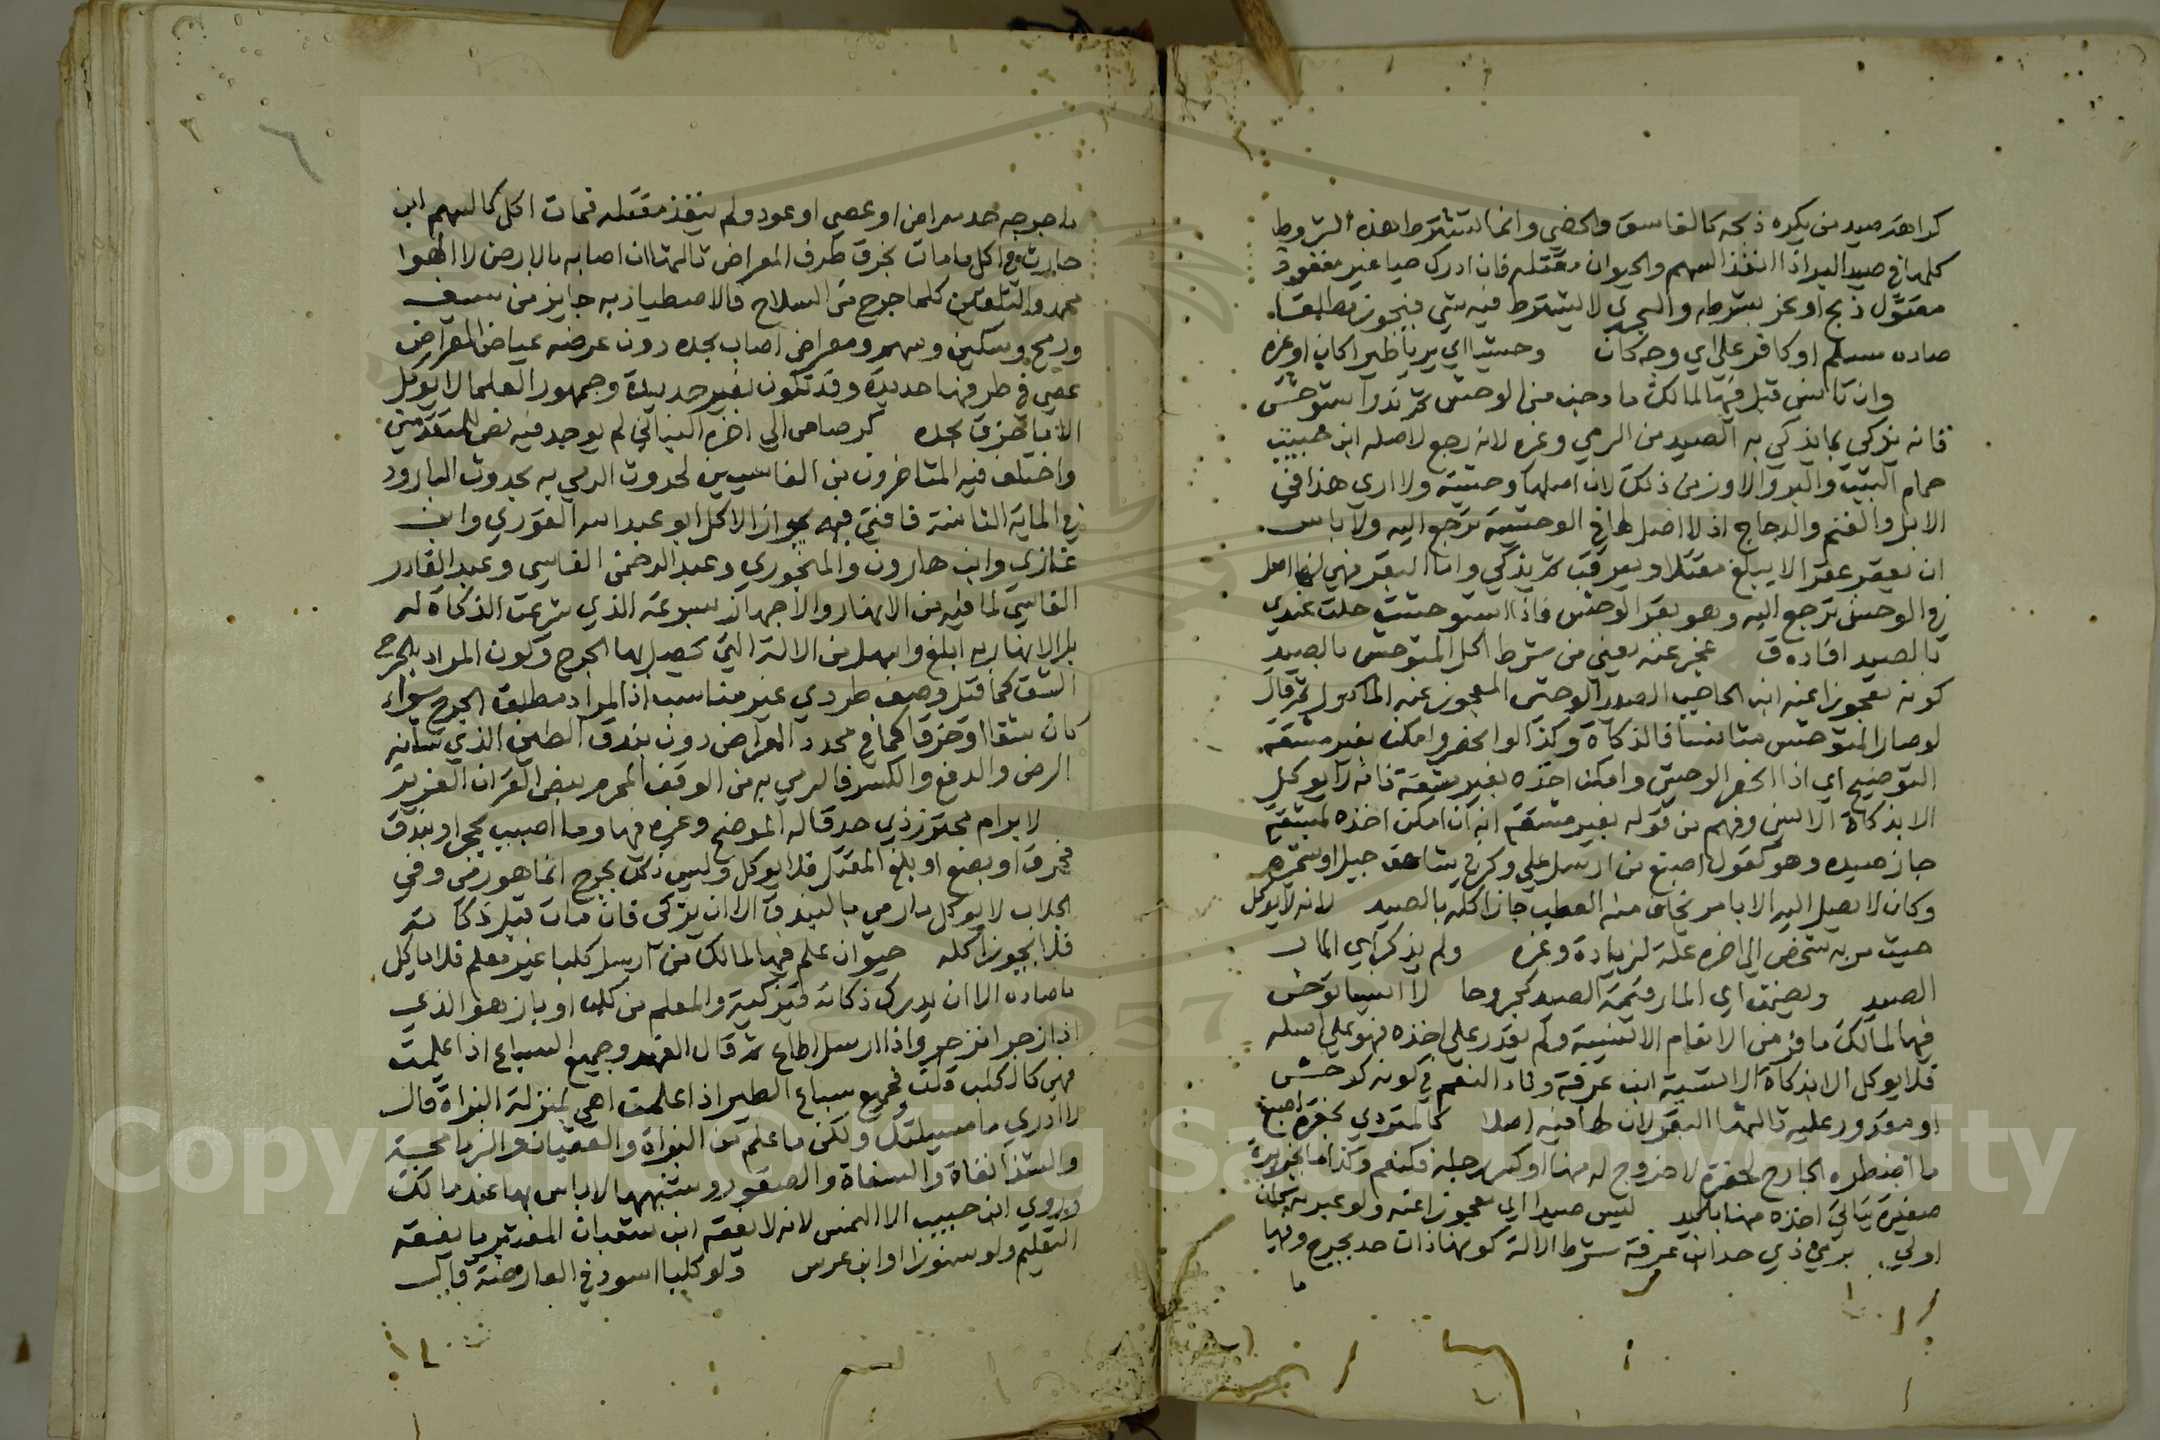 كراهة صيد من يكره ذبحه كالفاسق والخصي وانما تشترط هذه الشروط
كلها في صيد البر اذا انفذ السهم والحيوان مقتله فان ادرك حيا غير منفوذ
مقتول ذبح او نحر بشرطه والبحري لا يشترط فيه شي فيجوز مطلقا
صاده مسلم او كافر على اي وجه كان وحشيا اي بريا طيرا كان او غيره
وان تانس قبل فيها لمالك ما دجن من الوحش ثم ند واستوحش
فانه يذكي بما يذكي به الصيد من الرمي وغيره لانه رجع لاصله ابن حبيب
حمام البيت والبرك والاوز من ذلك لان اصلها وحشية ولا اري هذا في
الابل والغنم والدجاج اذ لا اصل لها في الوحشية ترجع اليه ولا باس
ان يعقر عقرا لا يبلغ مقتلا ويعرقب ثم يذكي واما البقر فهي لها اصل
في الوحش ترجع اليه وهو بقر الوحش فاذا استوحشت حلت عندي
بالصيد افاده ق عجز عنه يعني من شرط اكل المتوحش بالصيد
كونه معجوزا عنه ابن الحاجب الصيد الوحش المعجوز عنه الماكول ثم قال
لو صار المتوحش متانسا فالذكاة وكذا لو انحصر وامكن بغير مشقة
التوضيح اي اذا انحصر الوحش وامكن اخذه بغير مشقة فانه لا يوكل
الا بذكاة الانسي وفهم من قوله بغير مشقة انه ان امكن اخذه لمشقة
جاز صيده وهو كقول اصبغ من ارسل علي وكر في شاهق جبل او شجرة
وكان لا يصل اليه الا بامر يخاف منه العطب جاز اكله بالصيد لانه لا يوكل
حيث مر به شخص الي اخره علة لزيادة وغره ولم يذكر اي المار
الصيد ويضمن اي المار قيمة الصيد مجروحا لا انسيا توحش
فيها لمالك ما ند من الانعام الانسية ولم يقدر علي اخذه فهو علي اصله
فلا يوكل الا بذكاة الانسية ابن عرفة وناد النعم في كونه كوحش
او مقدور عليه ثالثها البقر لان لها فيه اصلا كالمتردي بحفرة اصبغ
ما اضطره الجارح لحفرة لا خروج له منها او كسر رجله فكنعم وكذا ما بجزيرة
صغيرة يتاتي اخذه منها باليد ليس صيدا اي معجوزا عنه ولو عبر به لكان
اولي بري ذي حد ابن عرفة شرط الالة كونها ذات حد يجرح وفيها
ما
ما جرحه حد معراض او عصي او عود ولم ينفذ مقتله فمات اكل كالسهم ابن
حارث وفي اكل ما مات بخرق طرف المعراض ثالثها ان اصابه بالارض لا الهوا
محمد والتلقين كلما جرح من السلاح فالاصطياد به جايز من سيف
ورمح وسكين وسهم ومعراض اصاب بحده دون عرضه عياض المعراض
عصي في طرفها حديدة وقد تكون بغير حديدة وجمهور العلما لا يوكل
الا ما خرق بحده كرصاص الي اخره البناني لم يوجد فيه نص للمتقدمين
واختلف فيه المتاخرون من الفاسيين لحدوث الرمي به بحدوث البارود
في الماية الثامنة فافتي فيه بجواز الاكل ابو عبد الله القوري وابن
غازي وابن هارون والمنجوري وعبد الرحمن الفاسي وعبد القادر
الفاسي لما فيه من الانهار والاجهاز بسرعة الذي شرعت الذكاة له
بل الانهار به ابلغ واسهل من الالة التي يحصل بها الجرح وكون المراد بالجرح
الشق كما قيل وصف طردي غير مناسب اذ المراد مطلق الجرح سواء
كان شقا او خرقا كما في محدد المعراض دون بندق الطين الذي شانه
الرض والدفع والكسر فالرمي به من الوقيذ المحرم بنص القران العزيز
لا برام محترز ذي حد قاله الموضح وغيره فيها وما اصيب بحجر او بندق
فخرق او بضع او بلغ المقتل فلا يوكل وليس ذلك بجرح انما هو رض وفي
الجلاب لا يوكل ما رمي بالبندق الا ان يذكي فان مات قبل ذكاته
فلا يجوز اكله حيوان علم فيها لمالك من ارسل كلبا غير معلم فلا ياكل
ما صاده الا ان يدرك ذكاته فيزكيه والمعلم من كلب او باز هو الذي
اذا زجر انزجر واذا ارسل اطاع ثم قال الفهد وجميع السباع اذا علمت
فهي كالكلب قلت فجميع سباع الطير اذا علمت اهي بمنزلة البزاة قال
لا ادري ما مسيلتك ولكن ما علم من البزاة والعقبان والزمامجة
والشذانقاة والسفاة والصقور وشبهها لا باس بها عند مالك
وروي ابن حبيب الا النمس لانه لا يفقه ابن شعبان المعتبر ما يفقه
التعليم ولو سنورا او ابن عرس ولو كلبا اسود في العارضة قال